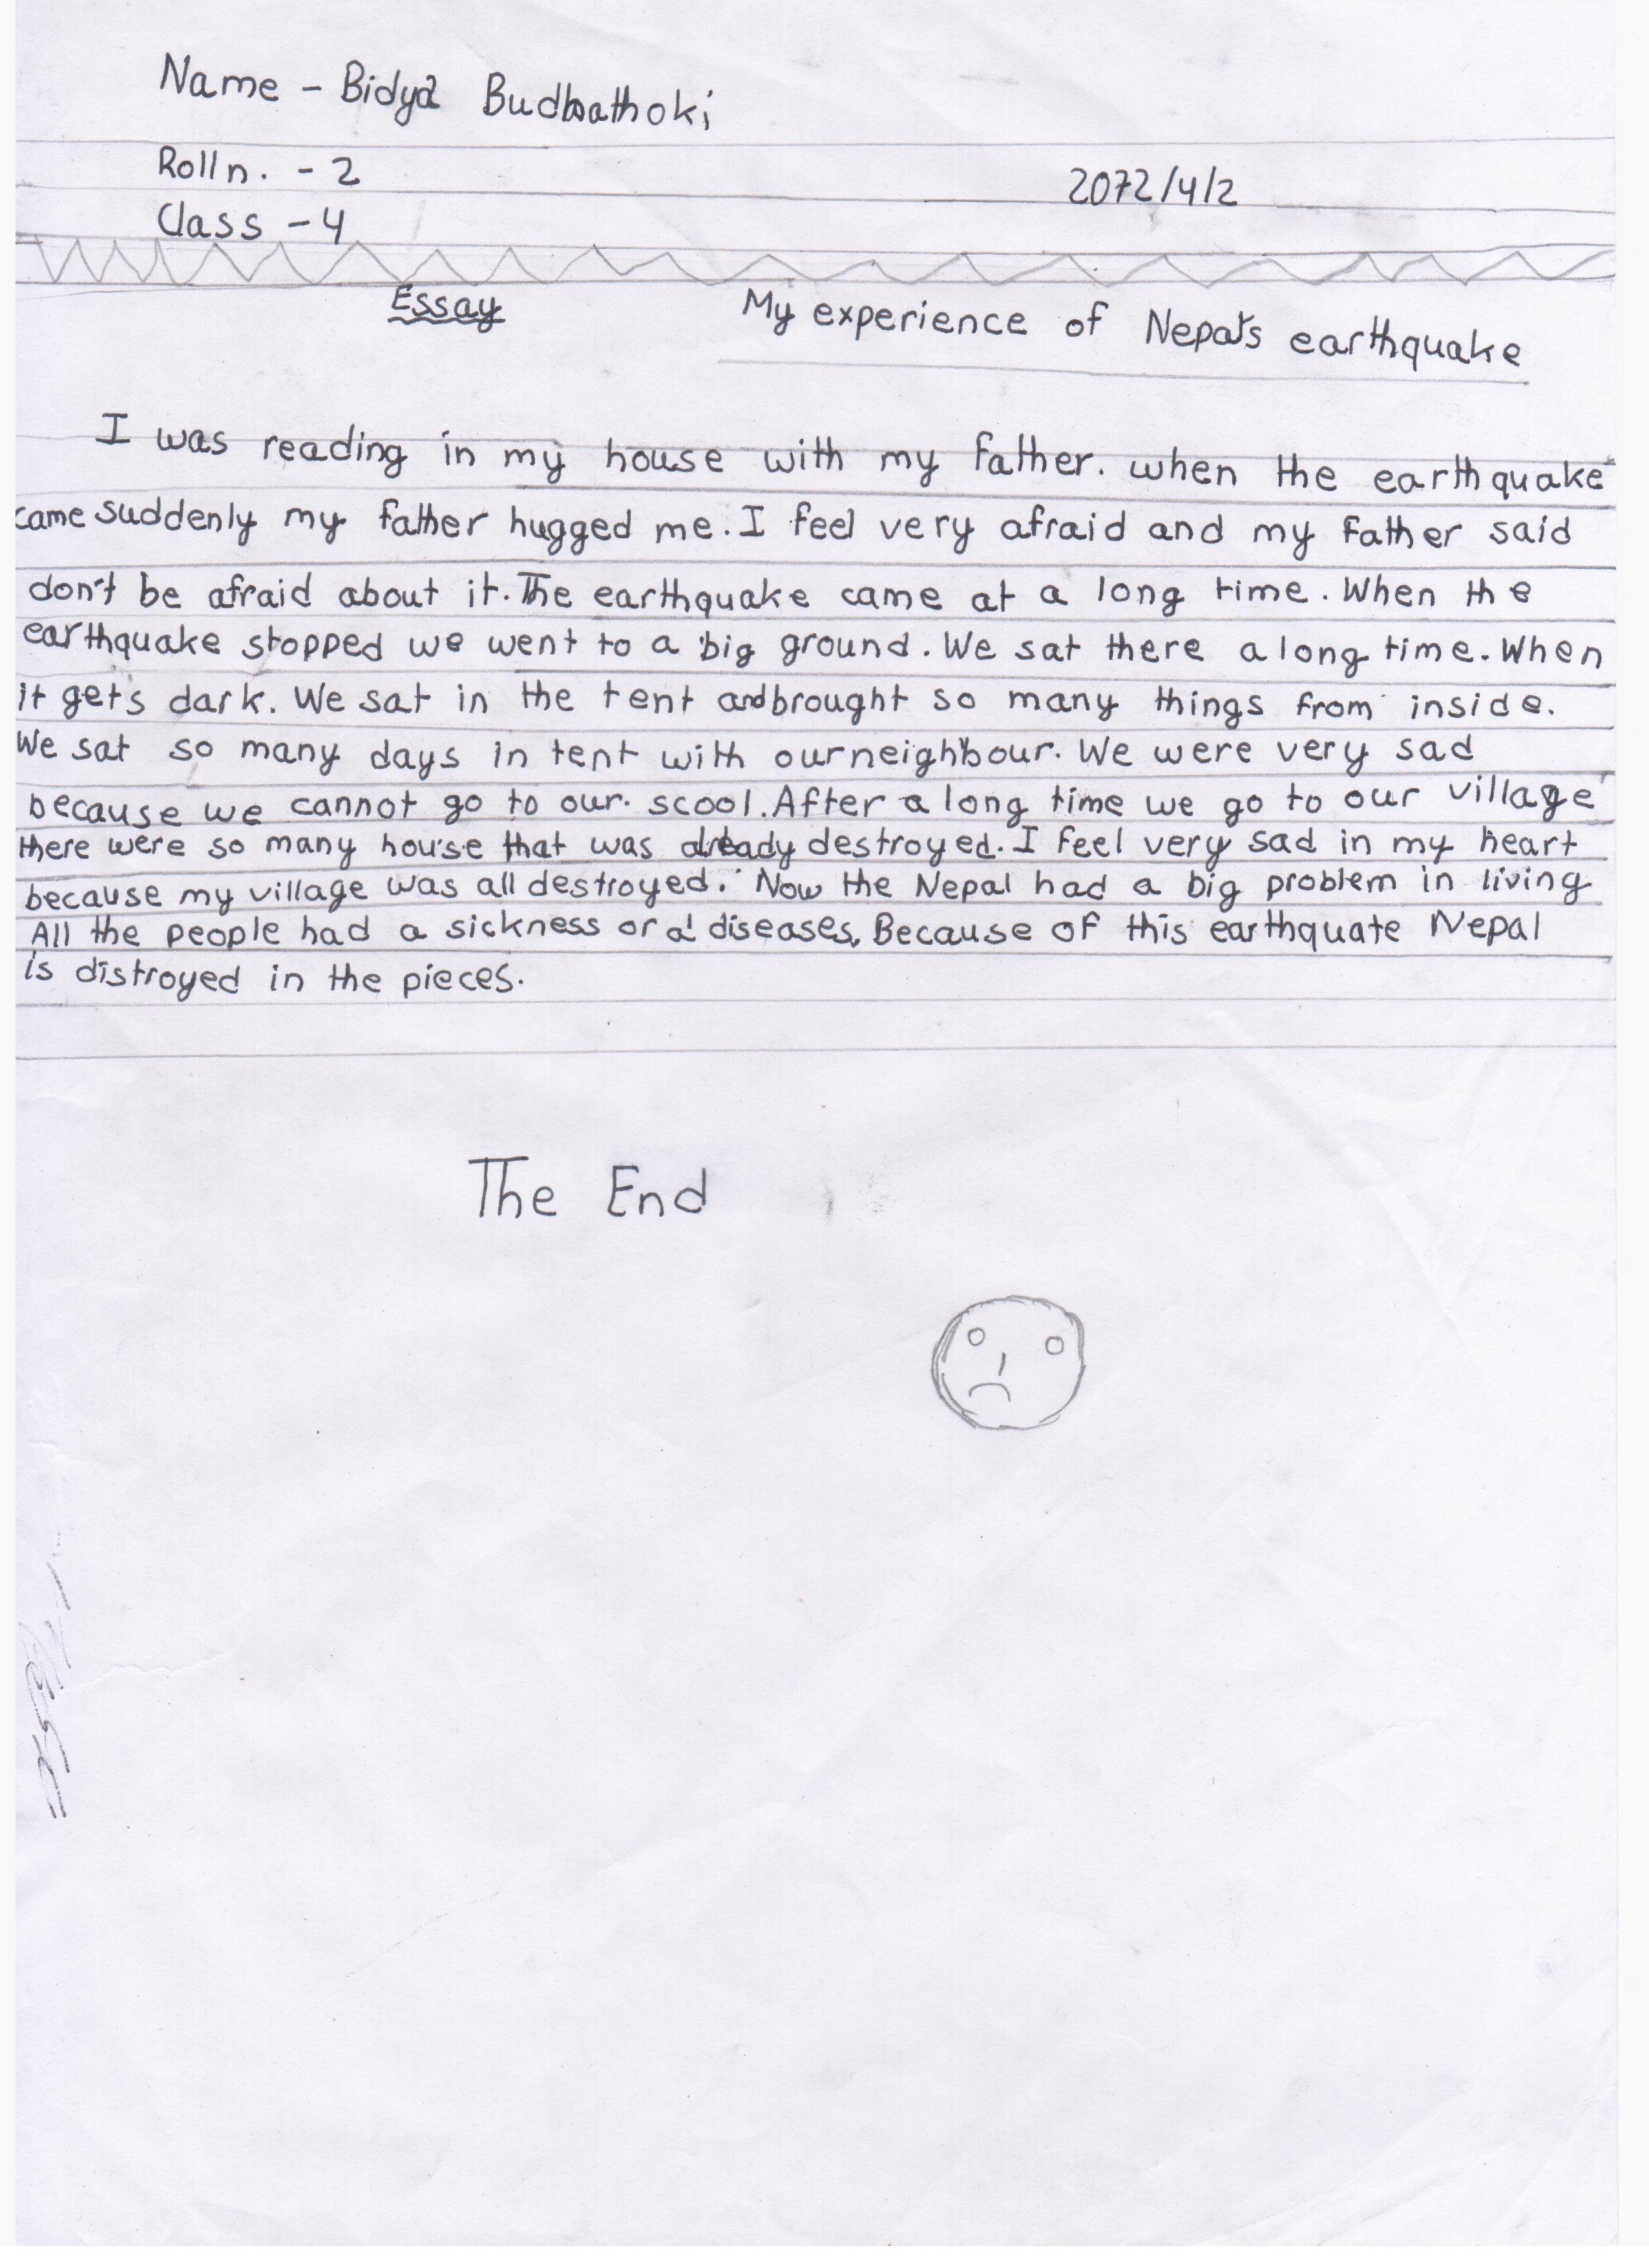 Name - Bidya Budhathoki
Roll n. - 2
2072/4/2
Class - 4
Essay My experience of Nepal's earthquake
I was reading in my house with my father. when the earthquake
came suddenly my father hugged me. I feel very afraid and my Father said
don't be afraid about it. The earthquake came at a long time. When the
earthquake stopped we went to a big ground. We sat there a long time. When
it gets dark. We sat in the tent and brought so many things from inside.
We sat so many days in tent with our neighbour. We were very sad
because we cannot go to our scool. After a long time we go to our village
there were so many house that was already destroyed. I feel very sad in my heart
because my village was all destroyed. Now the Nepal had a big problem in living
All the people had a sickness or a diseases. Because of this earthquate Nepal
is distroyed in the pieces.
The End